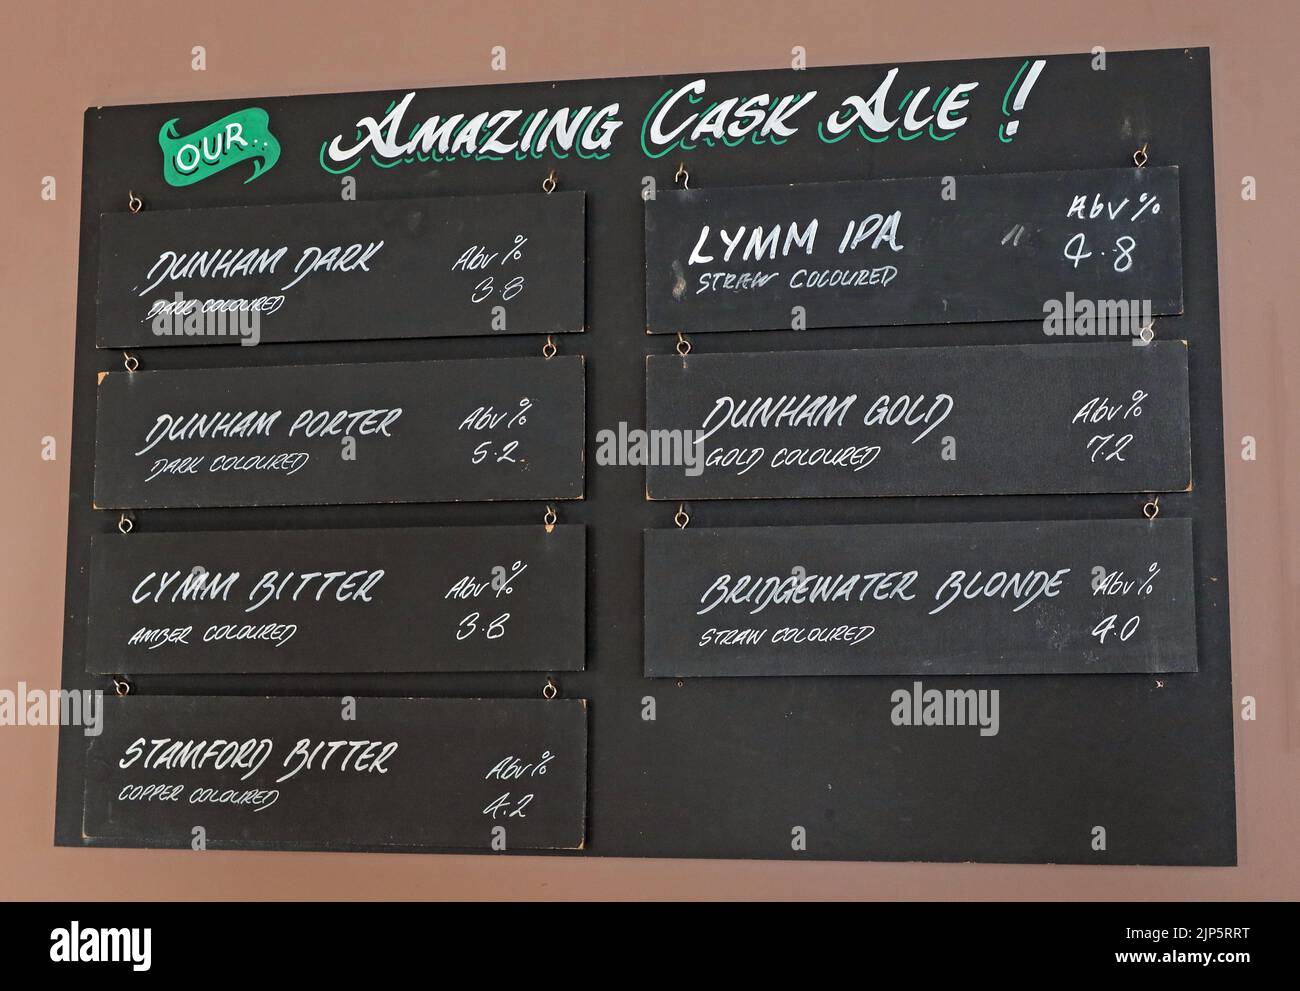 OUR..
AMAZING CASK ALE !
DUNHAM DARK
Abv %
DARK COLOURED
3.8
DUNHAM PORTER
Abv %
DARK COLOURED
5.2
LYMM BITTER
Abv %
AMBER COLOURED
3.8
STAMFORD BITTER
Abv %
COPPER COLOURED
4.2
LYMM IPA
Abv %
STRAW COLOURED
4.8
DUNHAM GOLD
Abv %
GOLD COLOURED
7.2
BRIDGEWATER BLONDE
Abv %
STRAW COLOURED
4.0
alamy
a
alamy
Image ID: 2JP5RRT
www.alamy.com